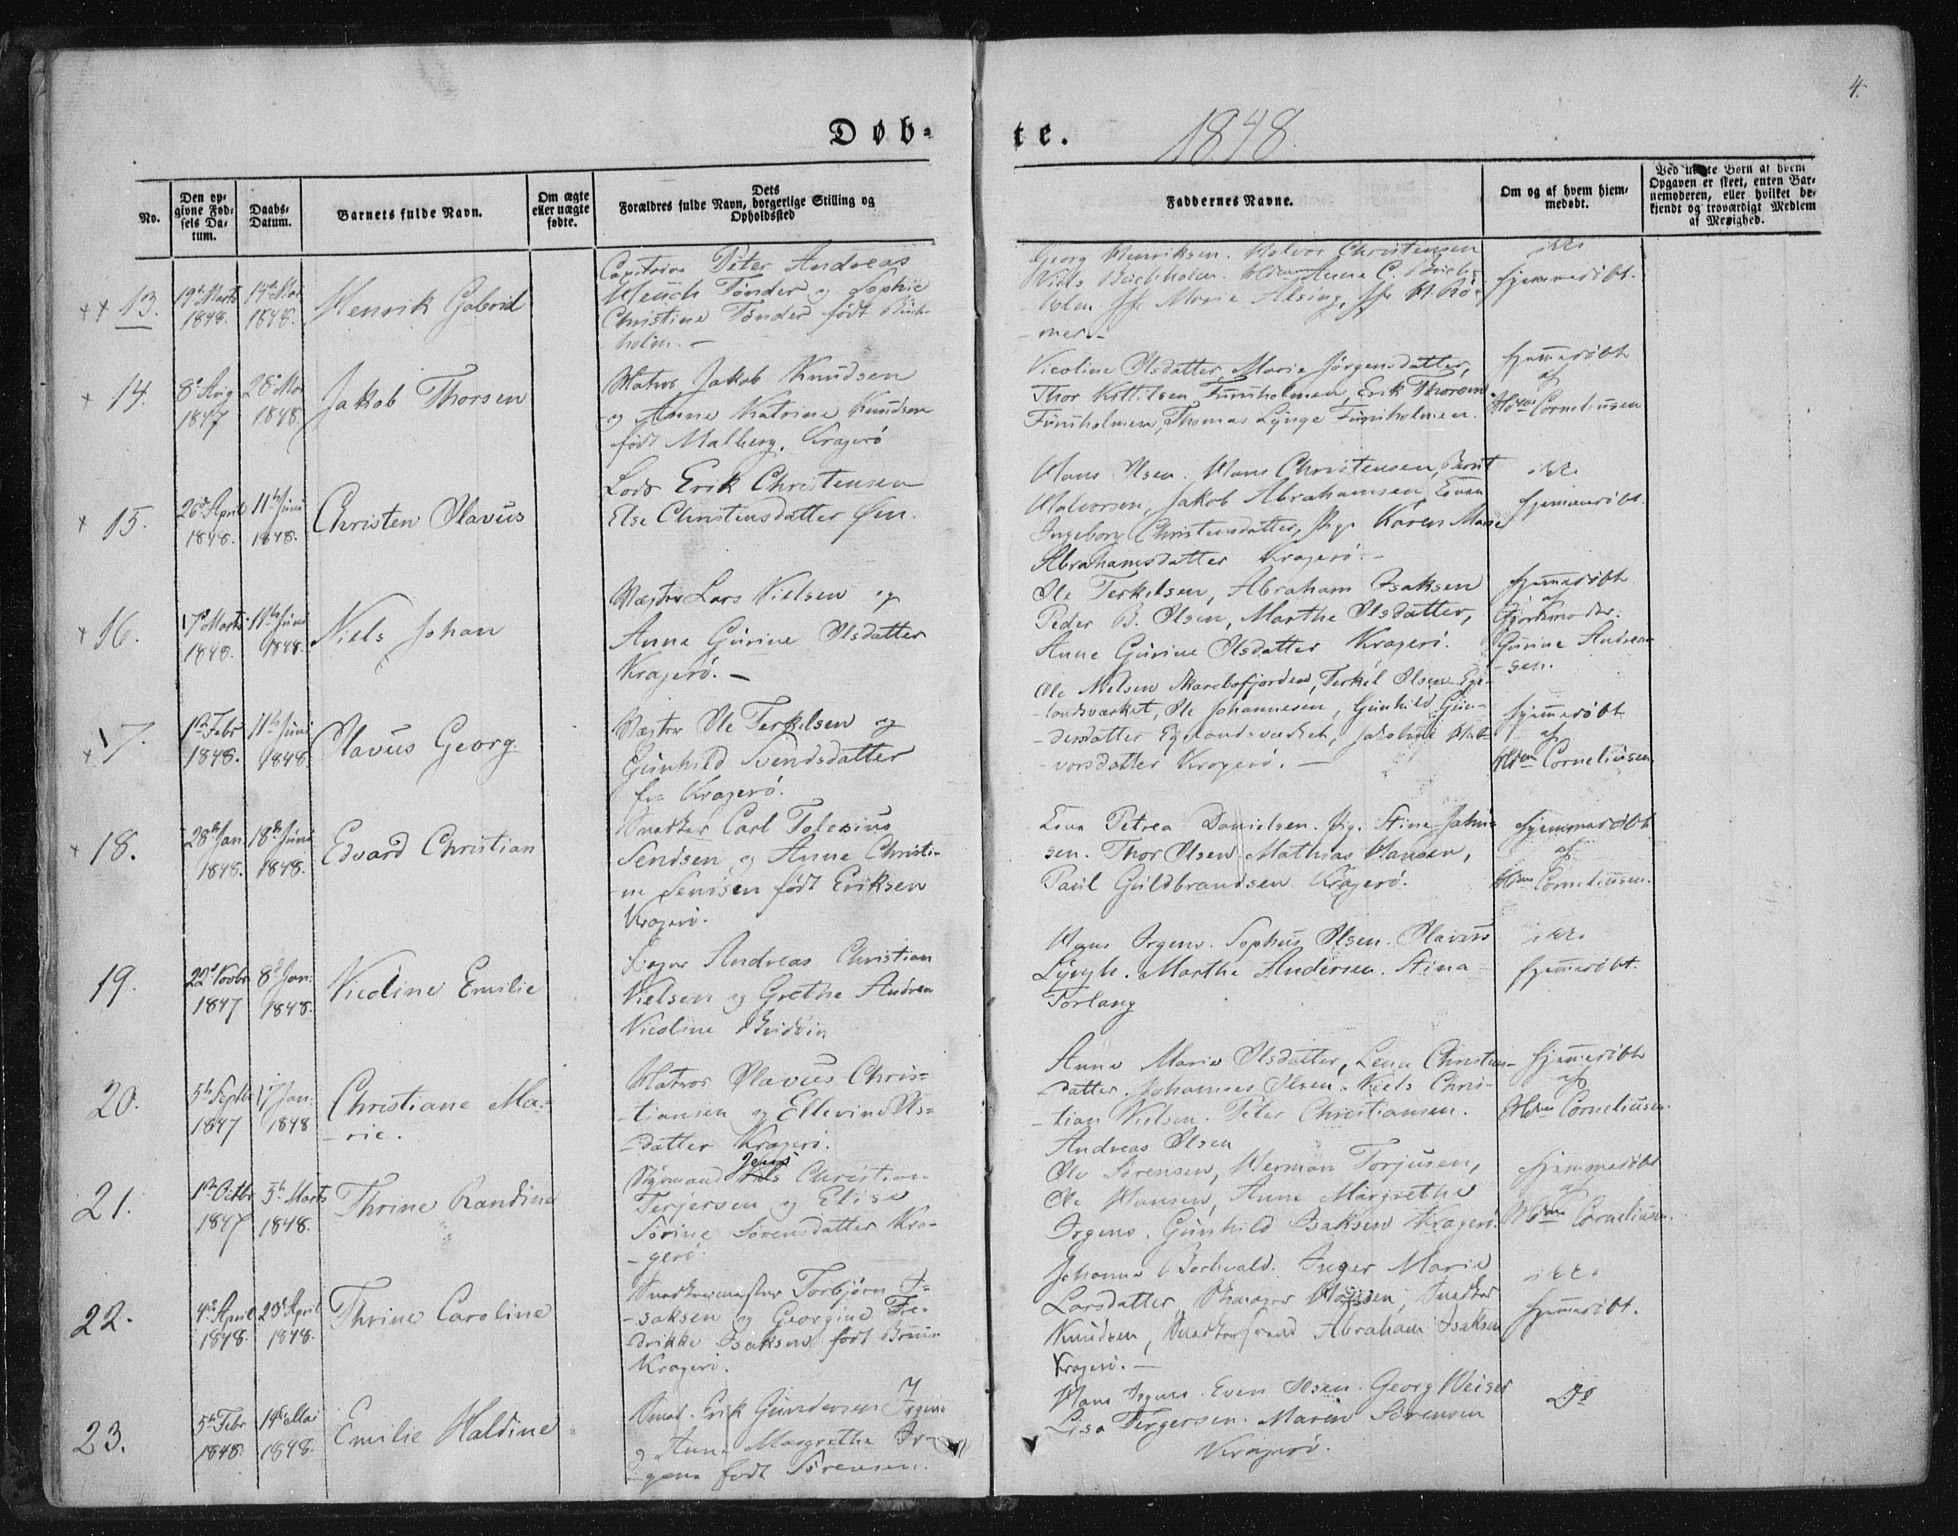 4.
Døb-
te.
1848.
No.
Den op-
givne Fød-
sels Da-
tum.
Daabs-
Datum.
Barnets fulde Navn.
Om ægte
eller uægte
fødte.
Dets
Forældres fulde Navn, borgerlige Stilling og
Opholdssted
Faddernes Navne.
Om og af hvem hjem-
medøbt.
Ved uægte Børn af hvem
Opgaven er skeet, enten Bar-
nemoderen, eller hvilket be-
kjendt og troværdigt Medlem
af Menighed.
13.
1848.
1848.
Henrik Gabriel
Peter Andreas
Heuch Tønder og Sophie
Christine Tønder født Buch-
holm. -
Georg Henriksen. Halvor Christensen
Niels Buchholm. Anna C. Buch-
holm. Marie Alsing,
ikke
hjemmedøbt.
14.
8de Aug
1847
28de Mai
1848.
Jakob Thorsen
Matros Jakob Knudsen
og Anne Katrine Knudsen
født Malberg, Kragerö
Nicoline Olsdatter, Marie Jörgensdatter,
Thor Kittilsen Furuholmen, Erik Thorsen
Furuholmen, Thomas Lynge Furuholmen.
hjemmedöbt
af
Corneliusen
15.
26de April
1848.
11te Juni
1848.
Christen Olavus
Lods Erik Christensen
Else Christensdatter Øen.
Hans Olsen. Hans Christensen, Bernt
Halvorsen, Jakob Abrahamsen,
Ingeborg Christensdatter, Pige Karen Marie
Abrahamsdatter Kragerö. -
ikke
hjemmedöbt.
16.
17de Marts
1848.
11te Juni
1848.
Niels Johan
Vægter Lars Nielsen og
Anne Gurine Olsdatter
Kragerö. -
Ole Terkelsen, Abraham Isaksen
Peder B. Olsen, Marthe Olsdatter,
Anne Gurine Olsdatter Kragerö.
hjemmedöbt
af
Gjordemoder
Gurine Andrea-
sen.
17.
1ste Febr
1848.
11te Juni
1848
Olavus Georg.
Vægter Ole Terkelsen og
Gunhild Svendsdatter
Kragerö.
Ole Nielsen Skarclsfjorden, Terkel Olsen Ege-
landsværket, Ole Johannesen, Gunhild Gun-
dersdatter Egelandsværket, Jakobine Hal-
vorsdatter Kragerö. -
hjemmedöbt
af
Corneliusen
18.
28de Jan
1848.
18de Juni
1848.
Edvard Christian
Snedker Carl Tolesius
Sendsen og Anne Christi-
ne Sendsen født Eriksen
Kragerö.
Petrea Danielsen. Pig. Stine Jahn-
sen. Thor Olsen. Mathias Hansen,
Paul Guldbrandsen Kragerö.
hjemmedöbt
af
Corneliusen.
19.
22de Novbr
1847
8de Jan:
1848.
Nicoline Emilie
Andreas Christian
Nielsen og Grethe Andrea
Nicoline
Hans Irgens. Sophus Olsen. Olavus
Lyngh. Marthe Andersen. Stina
Torlang
ikke
hjemmedöbt.
20.
5te Septbr
1847
17 Jan:
1848
Christiane Ma-
rie.
Matros Olavus Chris-
tiansen og Ellevine Ols-
datter Kragerö.
Anne Marie Olsdatter, Lena Christens-
datter. Johannes Olsen. Niels Chris-
tian Nielsen. Peter Christiansen.
Andreas Olsen
hjemmedöbt
af
Corneliusen.
21.
1ste Octbr
1847
5te Marts
1848.
Thrine Randine
Jens
Christian
Terjersen og Elise
Sörine Sörensdatter Kra-
gerö.
Ole Sörensen, Herman Torjusen,
Ole Hansen, Anne Margrethe
Irgens. Gunhild Isaksen Kragerö.
hjemmedöbt
af
Corneliusen.
22.
4de April
1848.
23de April
1848.
Thrine Caroline
Snedkermester Torbjörn I-
saksen og Georgine Fre-
drikke Isaksen født Bruun
Kragerö.
Johanne Bochvald. Inger Marie
Larsdatter, Snedker
Knudsen, Snedkersvend Abraham Isaksen
Kragerö. -
ikke
hjemmedöbt.
23.
5te Febr
1848.
14de Mai
1848.
Emilie Haldine
Smed. Erik Gundersen Irgens
og Anne Margrethe Ir-
gens født Sörensen.
Hans Irgens. Even Olsen. Georg Weiser
Lisa Tergersen. Maren Sörensen
Kragerö.
Do